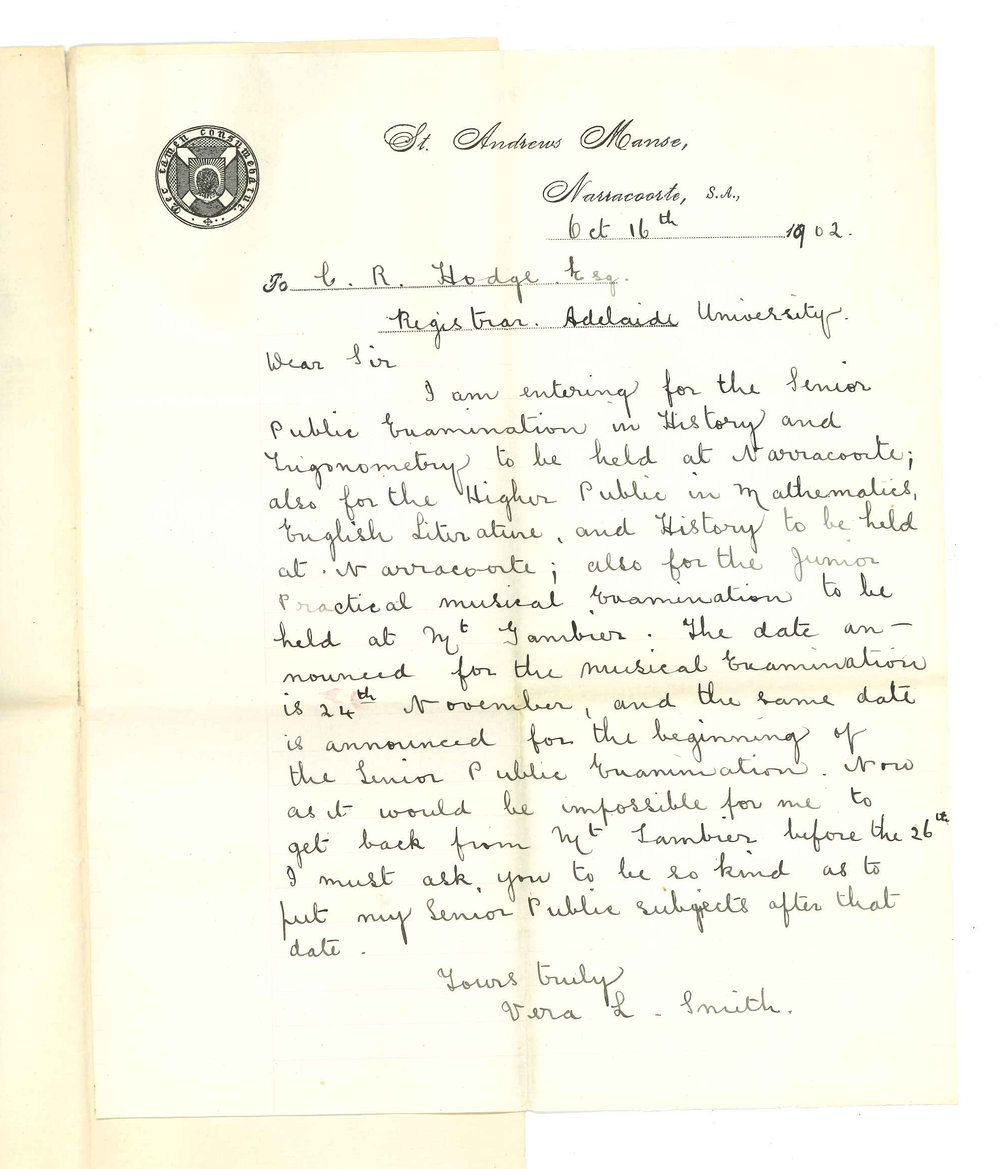 Nec tamen consumebatur
St. Andrews Manse,
Narracoorte, S.A.,
Oct 16th 1902.
To C. R. Hodge Esq.
Registrar. Adelaide University.
Dear Sir
I am entering for the Senior
Public Examination in History and
Trigonometry to be held at Narracoorte;
also for the Higher Public in Mathematics,
English Literature, and History to be held
at Narracoorte; also for the Junior
Practical musical Examination to be
held at Mt Gambier. The date an-
nounced for the musical Examination
is 24th November, and the same date
is announced for the beginning of
the Senior Public Examination. Now
as it would be impossible for me to
get back from Mt Gambier before the 26th
I must ask, you to be so kind as to
put my Senior Public subjects after that
date.
Yours truly
Vera L. Smith.